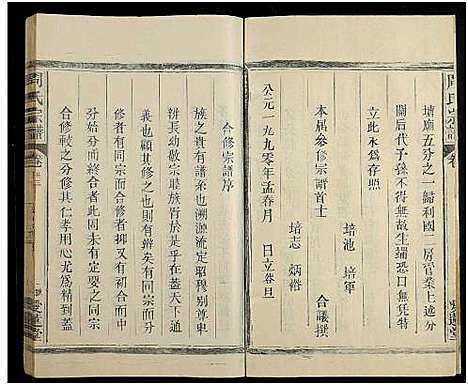 周氏宗譜
卷
墳廟五分之一歸利國二房官業上述分
關后代子孫不得無故生端恐口無凭特
立此永為存照
本届參修宗譜首士
培池 培軍
培志 炳裕
合議撰
公元一九九零年孟春月 日立谷旦
合修宗譜序
族之有譜系也溯源流定昭穆别尊卑
辨長幼敬宗聯族胥於是在蓋天下通
義也顧其修之亦則有辨矣有同宗而合
修者有同宗而分修者更有同宗始而
分始而終合者此固未有定要之同宗
合修較之分修其仁孝用心尤為精到蓋
周氏宗譜
卷
愛蓮堂